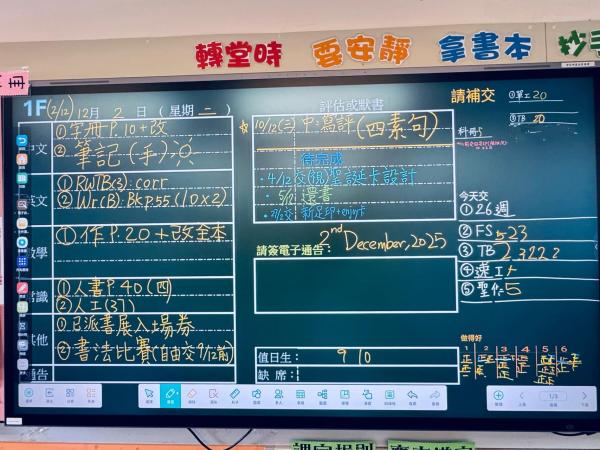 轉堂時 要安靜 拿書本 抄手
1F(2/12) 12月 2 日 (星期 二 )
中文
①字冊P.10+改
②筆記(手)
英文
①RWTB(3): corr
②Wr(B): Bkp55(10x2)
數學
①作P.20+改全本
常識
①人書P.40(四)
②人工(37)
其他
①已派書展入場券
②書法比賽(自由交9/12前)
通告
評估或默書
☆10/12(三)中:寫評(四素句)
待完成
•4/12交(視)聖誕卡設計
•5/12 還書
新足印+enjoy卡
2nd December, 2025
請簽電子通告:
值日生: 9 10
缺席:
請補交
①單工20
②TB 20
今天交
①26週
②FS 523
③TB 23222
⑤聖作5
做得好
1 2 3 4 5 6
1/3